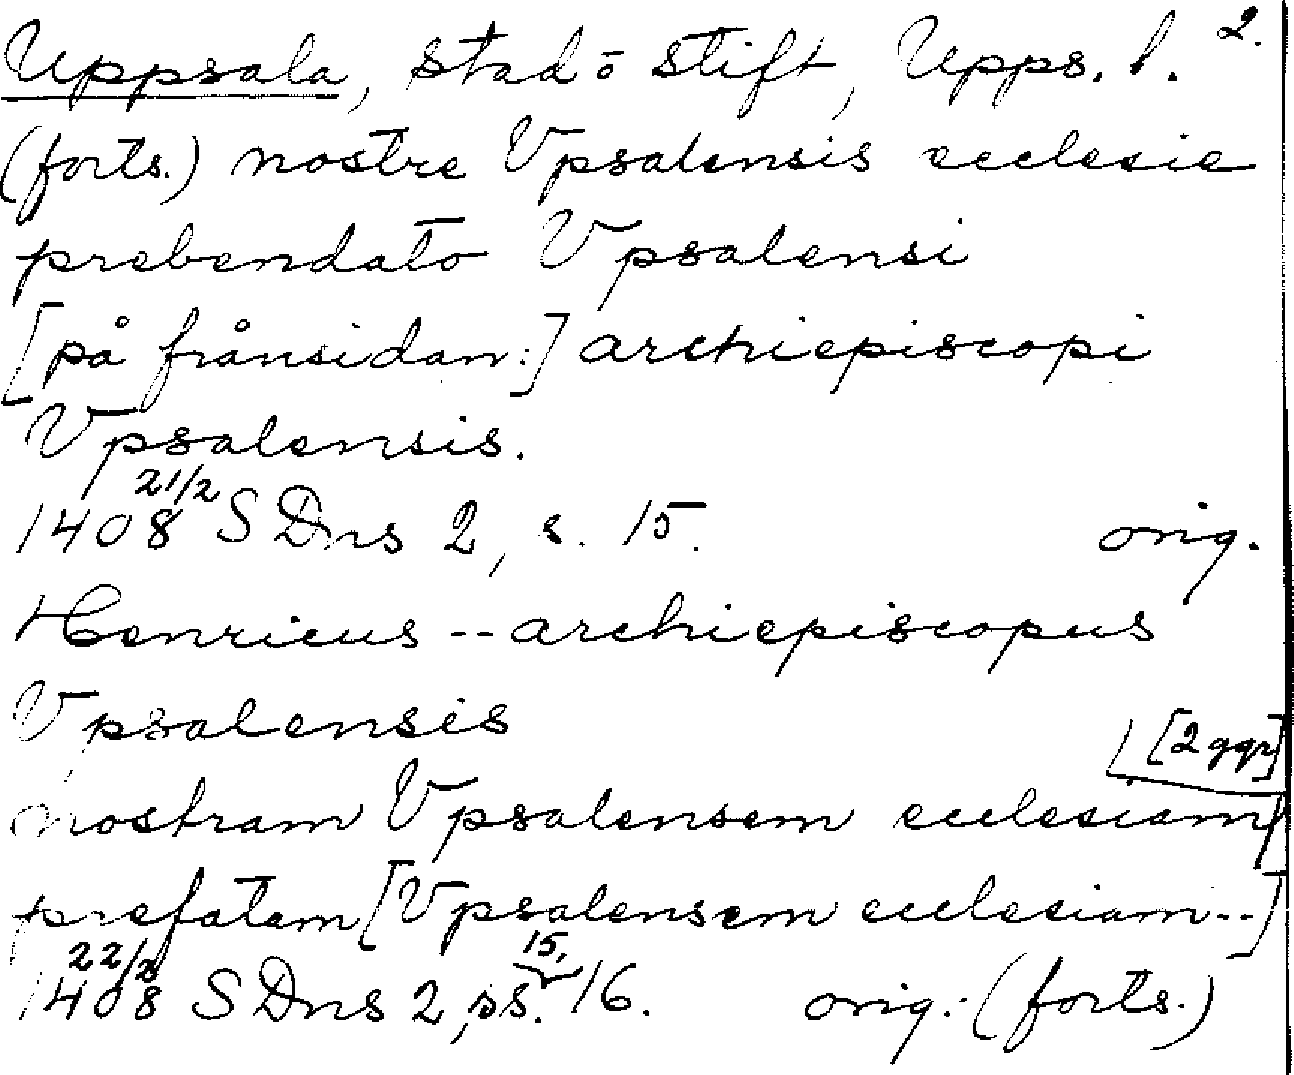 Uppsala, stad o stift, Upps. l. 2.
(forts.) nostre Vpsalensis ecclesie
prebendato Vpsalensi
[på frånsidan:] archiepiscopi
Vpsalensis.
1408 21/2 SDns 2, s. 15. orig.
Henricus -- archiepiscopus
Vpsalensis
[2 ggr]
nostram Vpsalensem ecclesiam
prefatam [Vpsalensem ecclesiam--]
1408 22/2 SDns 2, ss. 15, 16. orig. (forts.)